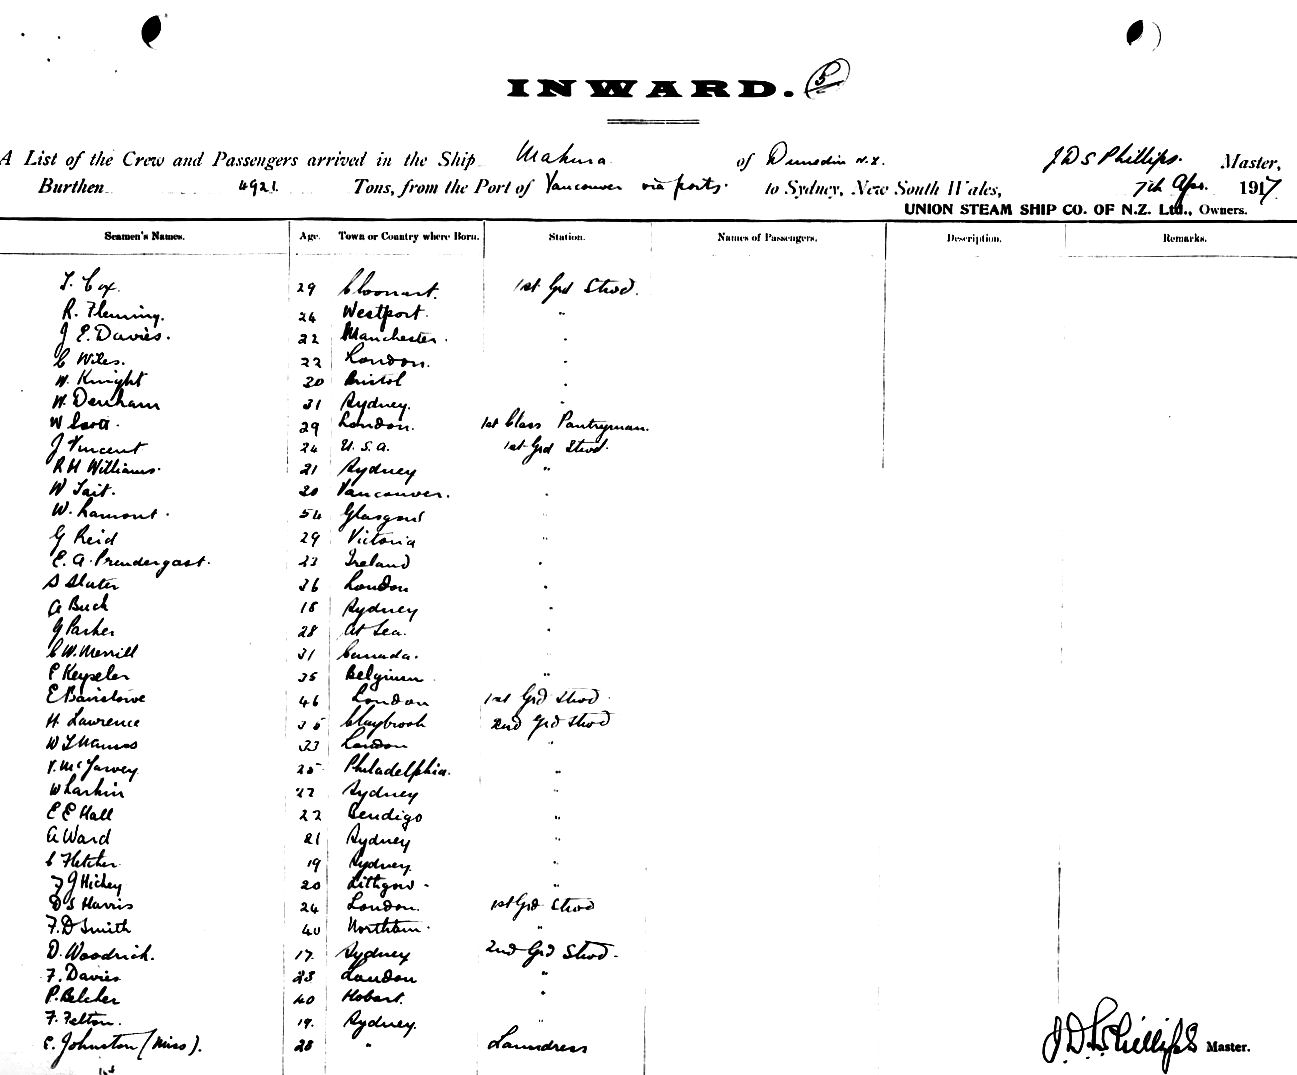 INWARD. 5
A List of the Crew and Passengers arrived in the Ship Makura of Dunedin N.Z. J D S Phillips. Master,
Burthen 4921. Tons, from the Port of Vancouver via ports. to Sydney, New South Wales, 7th Apr. 1917
UNION STEAM SHIP CO. OF N.Z. Ltd., Owners.
Seamen's Names. Age. Town or Country where Born. Station. Names of Passengers. Description. Remarks.
Cox. 29 1st Grd Stwd.
R. Fleming. 24 Westport. "
J E. Davies. 22 Manchester. "
C Wiles. 22 London. "
W. Knight 20 Bristol "
W. Denham 31 Sydney. "
W Scott. 29 London. 1st Class Pantryman.
J Vincent 24 U.S.A. 1st Grd Stwd.
R H Williams. 21 Sydney "
W Tait. 20 Vancouver. "
W. Lamont. 54 Glasgow "
G Reid 29 Victoria "
E. A. Prendergast. 23 Ireland "
S Slater 36 London "
A Buck 18 Sydney "
G Parker 28 At Sea. "
C W. Merrill 31 Canada. "
P Keyseler 35 Belgium "
E Bairstowe 46 London 1st Grd Stwd
H. Lawrence 35 Claybrook 2nd Grd Stwd
W 33 London "
V. McGarvey 25 Philadelphia. "
W Larkin 22 Sydney "
C E Hall 22 Bendigo "
A Ward 21 Sydney "
C Fletcher. 19 Sydney. "
F J Hickey 20 Lithgow. "
D S Harris 24 London. 1st Grd Stwd
F. D Smith 40 "
D. Woodrick. 17. Sydney 2nd Grd Stwd.
F. Davies 28 London "
P. Belcher 40 Hobart. "
F. Felton. 19. Sydney. "
E. Johnston (Miss). 28 " Laundress
J D S Phillips Master.